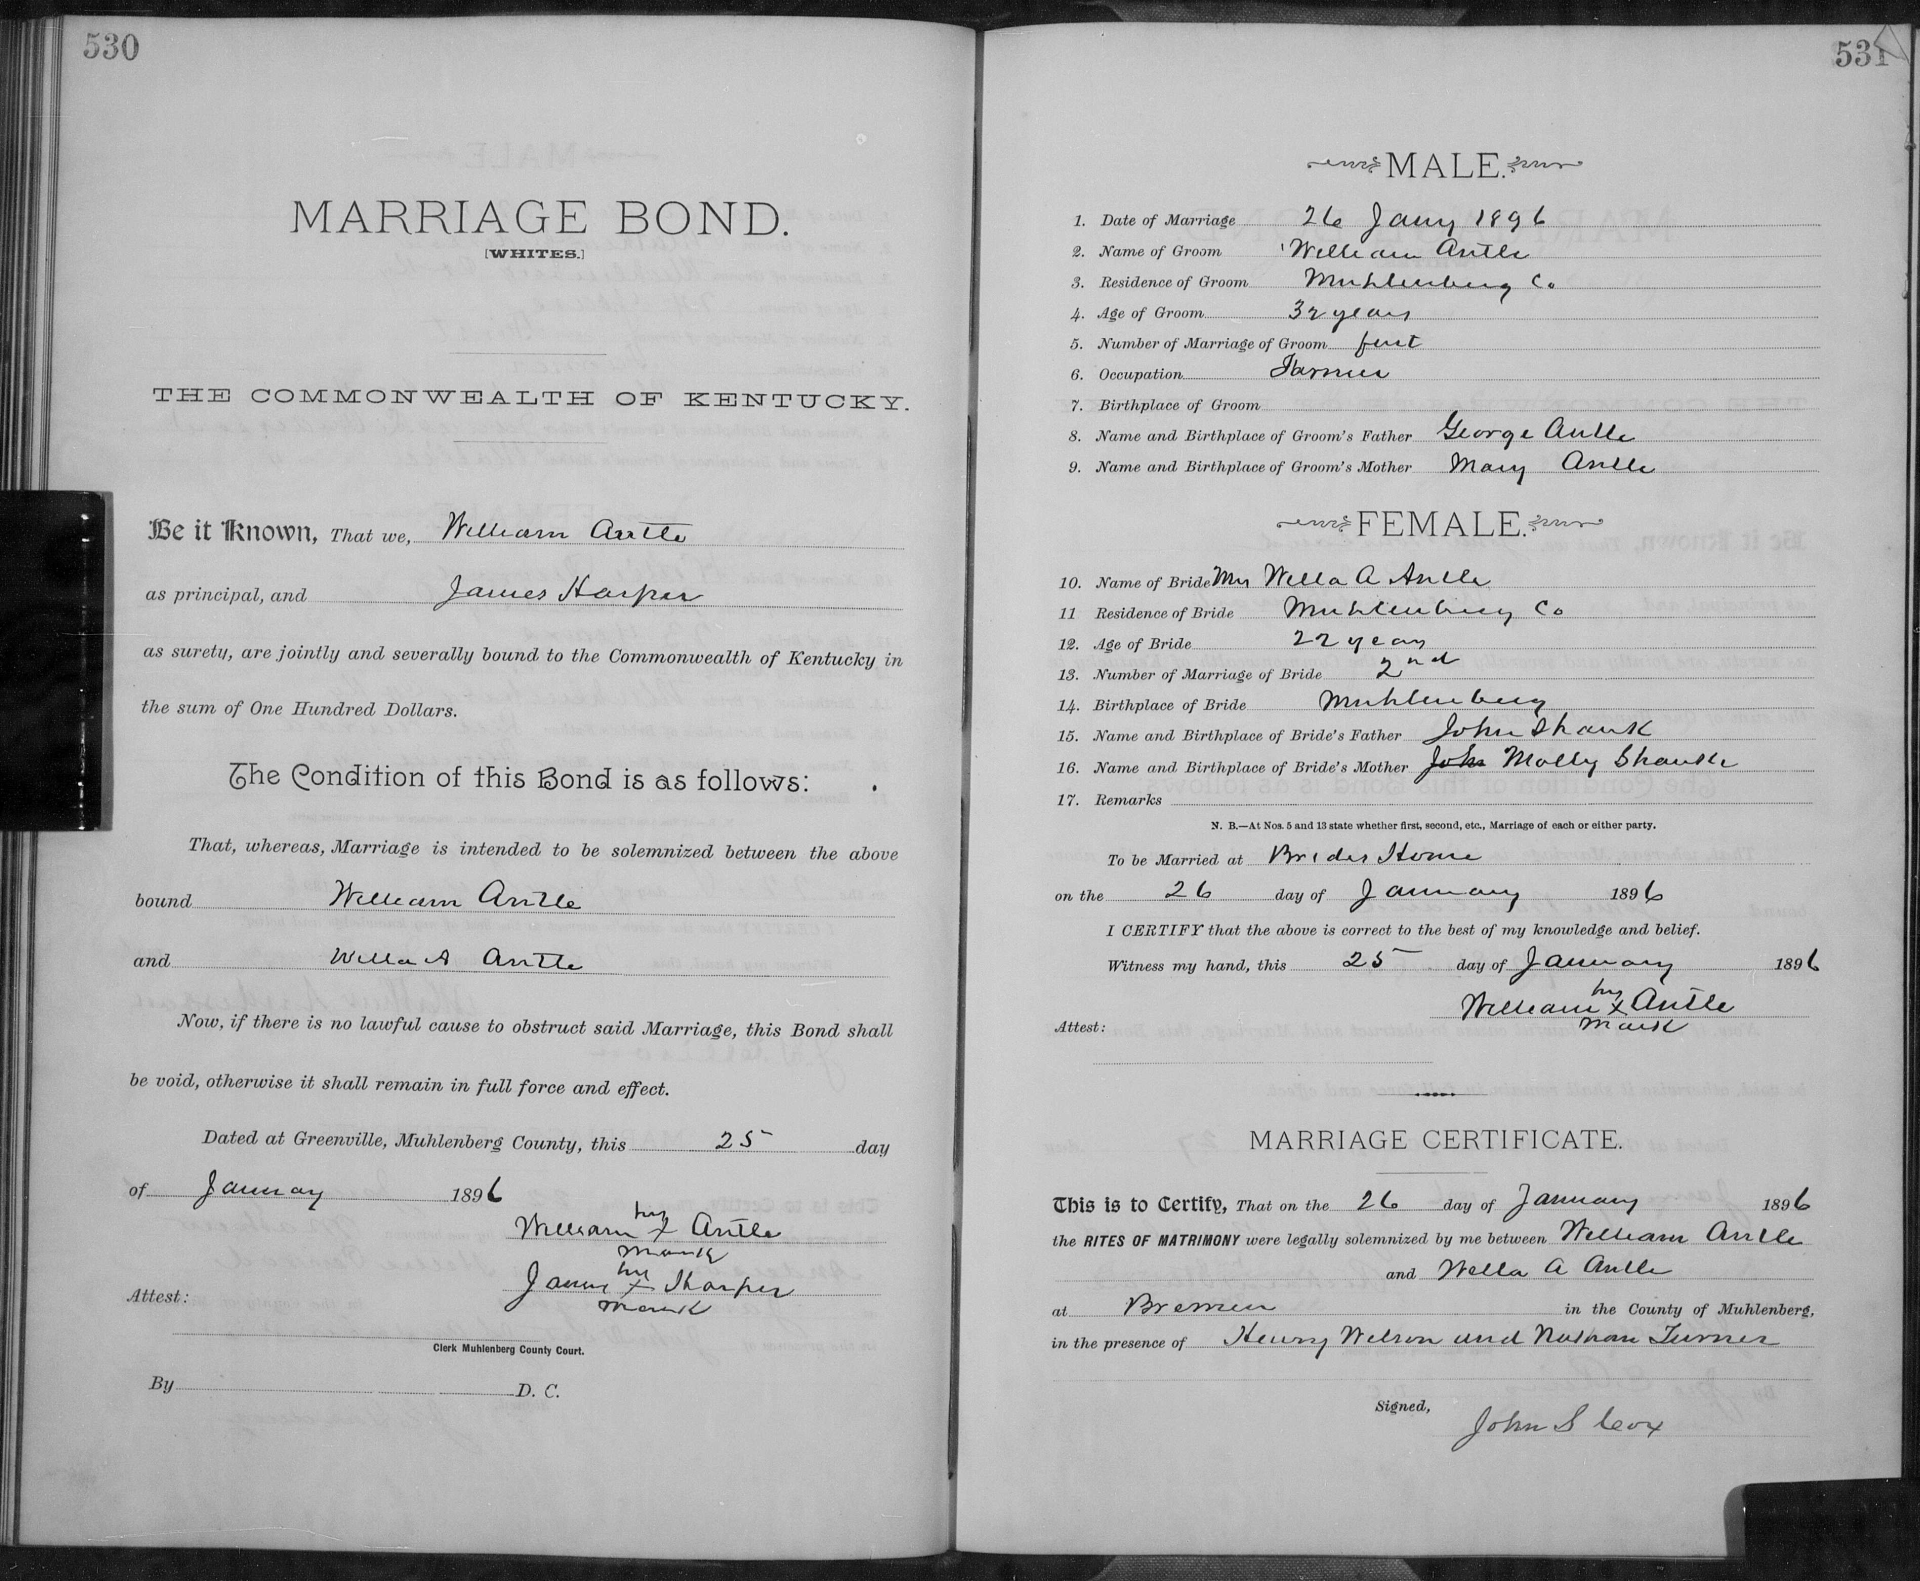 530
MARRIAGE BOND.
[WHITES.]
THE COMMONWEALTH OF KENTUCKY.
Be it Known, That we, William Antle
as principal, and James Harper
as surety, are jointly and severally bound to the Commonwealth of Kentucky in
the sum of One Hundred Dollars.
The Condition of this Bond is as follows:
That, whereas, Marriage is intended to be solemnized between the above
bound William Antle
and Willa A Antle
Now, if there is no lawful cause to obstruct said Marriage, this Bond shall
be void, otherwise it shall remain in full force and effect.
Dated at Greenville, Muhlenberg County, this 25 day
of January 1896
his
William x Antle
mark
his
James x Harper
mark
Attest:
Clerk Muhlenberg County Court.
By D. C.
531
MALE.
1. Date of Marriage 26 Jany 1896
2. Name of Groom William Antle
3. Residence of Groom Muhlenberg Co
4. Age of Groom 32 years
5. Number of Marriage of Groom first
6. Occupation Farmer
7. Birthplace of Groom
8. Name and Birthplace of Groom's Father George Antle
9. Name and Birthplace of Groom's Mother Mary Antle
FEMALE.
10. Name of Bride Mrs Willa A Antle
11 Residence of Bride Muhlenberg Co
12. Age of Bride 22 years
13. Number of Marriage of Bride 2nd
14. Birthplace of Bride Muhlenberg
15. Name and Birthplace of Bride's Father John Shank
16. Name and Birthplace of Bride's Mother John Molly Shank
17. Remarks
N. B.—At Nos. 5 and 13 state whether first, second, etc., Marriage of each or either party.
To be Married at Brides Home
on the 26 day of January 1896
I CERTIFY that the above is correct to the best of my knowledge and belief.
Witness my hand, this 25 day of January 1896
his
William x Antle
mark
Attest:
MARRIAGE CERTIFICATE.
This is to Certify, That on the 26 day of January 1896
the RITES OF MATRIMONY were legally solemnized by me between William Antle
and Willa A Antle
at Bremen in the County of Muhlenberg,
in the presence of Henry Wilson and Nathan Turner
Signed,
John S Cox